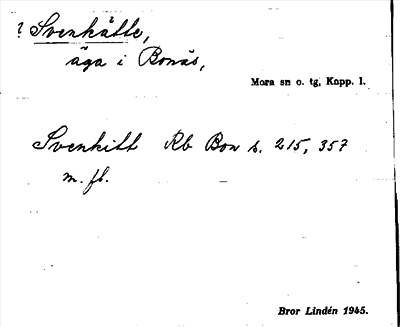 ? Svenkätte,
äga i Bonäs,
Mora sn o. tg, Kopp. l.
Svenkitt Rb Bon s. 215, 357
m. fl.
Bror Lindén 1945.